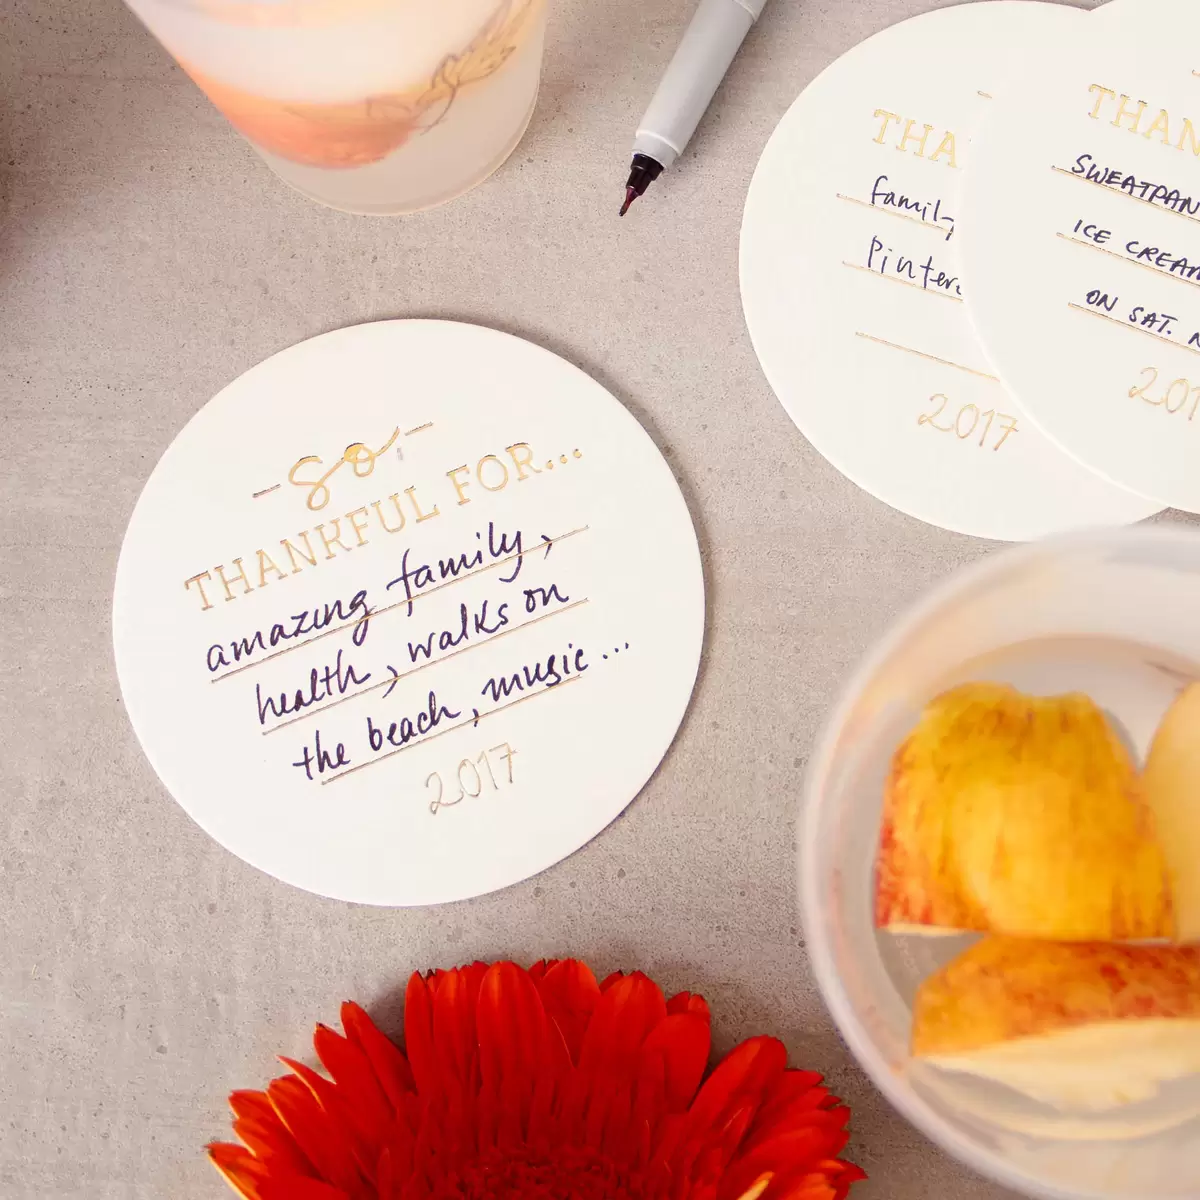 -so-
THANKFUL FOR...
amazing family,
health, walks on
the beach, music...
2017
THA
family
2017
THAN
SWEATPAN
ICE CREAM
ON SAT. N
201